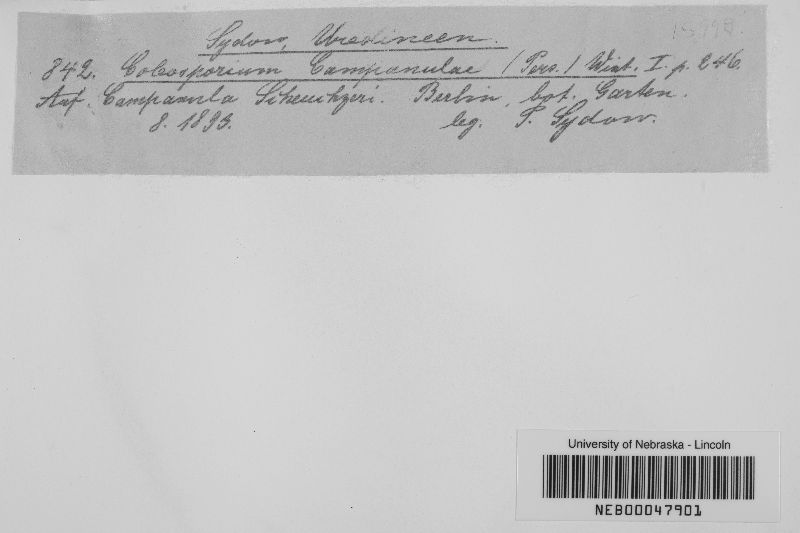 Sydow, Uredineen.
842. Coleosporium Campanulae (Pers.) Wint. I. p. 246.
Auf Campanula Scheuchzeri. Berlin, bot. Garten.
8. 1893. leg. P. Sydow.
University of Nebraska - Lincoln
NEB00047901